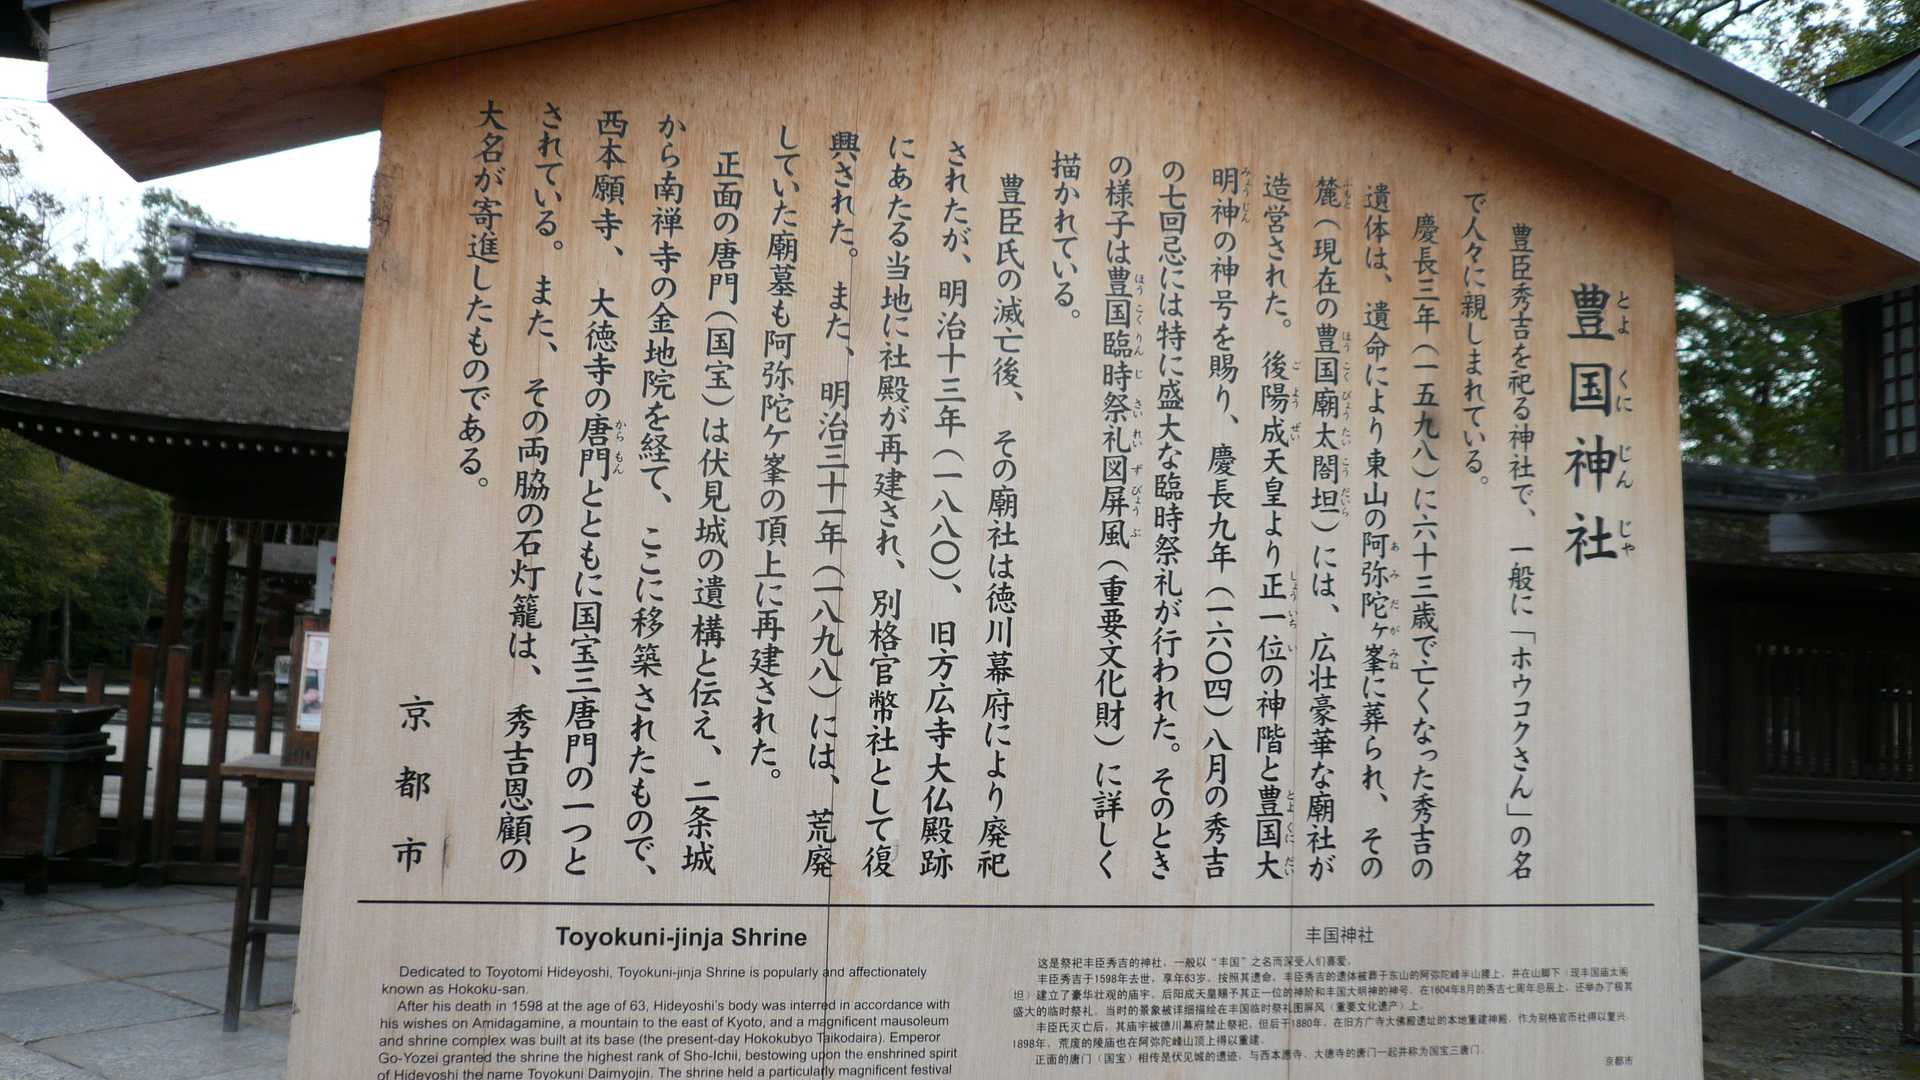 豊国神社
とよくにじんじゃ
豊臣秀吉を祀る神社で、一般に「ホウコクさん」の名
で人々に親しまれている。
慶長三年(一五九八)に六十三歳で亡くなった秀吉の
遺体は、遺命により東山の阿弥陀ヶ峯に葬られ、その
麓(現在の豊国廟太閤坦)には、広壮豪華な廟社が
造営された。後陽成天皇より正一位の神階と豊国大
明神の神号を賜り、慶長九年(一六〇四)八月の秀吉
の七回忌には特に盛大な臨時祭礼が行われた。そのとき
の様子は豊国臨時祭礼図屏風(重要文化財)に詳しく
描かれている。
豊臣氏の滅亡後、その廟社は徳川幕府により廃祀
されたが、明治十三年(一八八〇)、旧方広寺大仏殿跡
にあたる当地に社殿が再建され、別格官幣社として復
興された。また、明治三十一年(一八九八)には、荒廃
していた廟墓も阿弥陀ケ峯の頂上に再建された。
正面の唐門(国宝)は伏見城の遺構と伝え、二条城
から南禅寺の金地院を経て、ここに移築されたもので、
西本願寺、大徳寺の唐門とともに国宝三唐門の一つと
されている。また、その両脇の石灯籠は、秀吉恩顧の
大名が寄進したものである。
京都市
Toyokuni-jinja Shrine
Dedicated to Toyotomi Hideyoshi, Toyokuni-jinja Shrine is popularly and affectionately
known as Hokoku-san.
After his death in 1598 at the age of 63, Hideyoshi's body was interred in accordance with
his wishes on Amidagamine, a mountain to the east of Kyoto, and a magnificent mausoleum
and shrine complex was built at its base (the present-day Hokokubyo Taikodaira). Emperor
Go-Yozei granted the shrine the highest rank of Sho-Ichii, bestowing upon the enshrined spirit
of Hideyoshi the name Toyokuni Daimyojin. The shrine held a particularly magnificent festival
丰国神社
这是祭祀丰臣秀吉的神社，一般以“丰国”之名而深受人们喜爱。
丰臣秀吉于1598年去世，享年63岁，按照其遗命，丰臣秀吉的遗体被葬于东山的阿弥陀峰半山腰上，并在山脚下（现丰国庙太阁
坦）建立了豪华壮观的庙宇，后阳成天皇赐予其正一位的神阶和丰国大明神的神号。在1604年8月的秀吉七周年忌辰上，还举办了极其
盛大的临时祭礼，当时的景象被详细描绘在丰国临时祭礼图屏风（重要文化遗产）上。
丰臣氏灭亡后，其庙宇被德川幕府禁止祭祀，但后于1880年，在旧方广寺大佛殿遗址的本地重建神殿，作为别格官币社得以复兴。
1898年，荒废的陵庙也在阿弥陀峰山顶上得以重建。
正面的唐门（国宝）相传是伏见城的遗迹，与西本愿寺、大德寺的唐门一起并称为国宝三唐门。
京都市